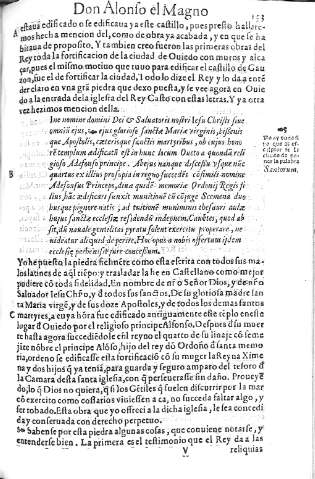 Don Alonso el Magno
153
A estaua edificado o se edificaua ya este castillo, pues presto hallare-
mos hecha mencion del, como de obra ya acabada, y en que se ha
bitaua de proposito. Y tambien creo fueron las primeras obras del
Rey toda la fortificacion de la ciudad de Ouiedo con muros y alca
çar, pues el mismo motiuo que tuuo para edificar el castillo de Gau
zon, fue el de fortificar la ciudad, I odo lo dize el Rey y lo da a enté
der claro en vna grã piedra que dexo puesta, y se vee agora en Ouie
do a la entrada dela iglesia del Rey Casto con estas letras. Y ya otra
vez hezimos mencion della.
Inne nomine domini Dei & Saluatoris nostri Iesu Christi siue
omniũ eius, gloriose sanctæ Mariæ virginis, bissenis
que Apostolis, cæterisque sanctis martyribus, ob cuius hono
rẽ templum ædificatũ est in hunc locum Oueto a quondã reli
gioso Adefonso principe. Ab eius namque discessu vsque nũc
B
quartus ex illius prosapia in regno succedẽs cosimili nomine
Adefonsus Princeps, diuæ quidẽ memoriæ Ordonij Regis fi
lius, hãc ædificari sanxit munitionẽ cũ cõiuge Scemena duo
busque pignore natis, ad tuitionẽ muniminis thesauri aulæ
huius sanctæ ecclesiæ residendũ indemnem. Cauẽtes, quod ab
sit, dũ nauale gentilitas pyrato solent exercitu properare, ne
videatur aliquid deperire. Hoc opus a nobis offertum eidem
ecclesiæ perhenni sit iure concessum.
Yo he puesto la piedra fielmẽte como esta escrita con todos sus ma-
los latines de aql tiẽpo: y trasladar la he en Castellano como mejor
pudiere cõ toda fidelidad. En nombre de nro Señor Dios, y de nro
Saluador Iesu Chro, y d todos sus sanctos, De su gloriosa madre san
ta Maria virgẽ, y de sus doze Apostoles, y de todos los demas santos
C martyres, a cuya hõra fue edificado antiguamente este tẽplo en este
lugar d Ouiedo por el religioso principe Alfonso. Despues d su muer
te hasta agora succediẽdole en el reyno el quarto de su linaje cõ seme
jãte nõbre el principe Alõso, hijo del rey dõ Ordoño d santa memo
ria, ordeno se edificasse esta fortificació cõ su muger la Reyna Xime
na y dos hijos q ya tenia, para guarda y seguro amparo del tesoro d
la Camara desta santa iglesia, con q perseuerasse sin daño. Proueyẽ
do, lo q Dios no quiera, q si los Gẽtiles q suelen discurrir por la mar
cõ exercito como cossarios viniessen a ca, no succeda faltar algo, y
ser robado. Esta obra que yo ofreci a la dicha iglesia, le sea concedi
da y conseruada con derecho perpetuo.
Sabense por esta piedra algunas cosas, que conuiene notarse, y
entenderse bien. La primera es el testimonio que el Rey da a las
V
reliquias